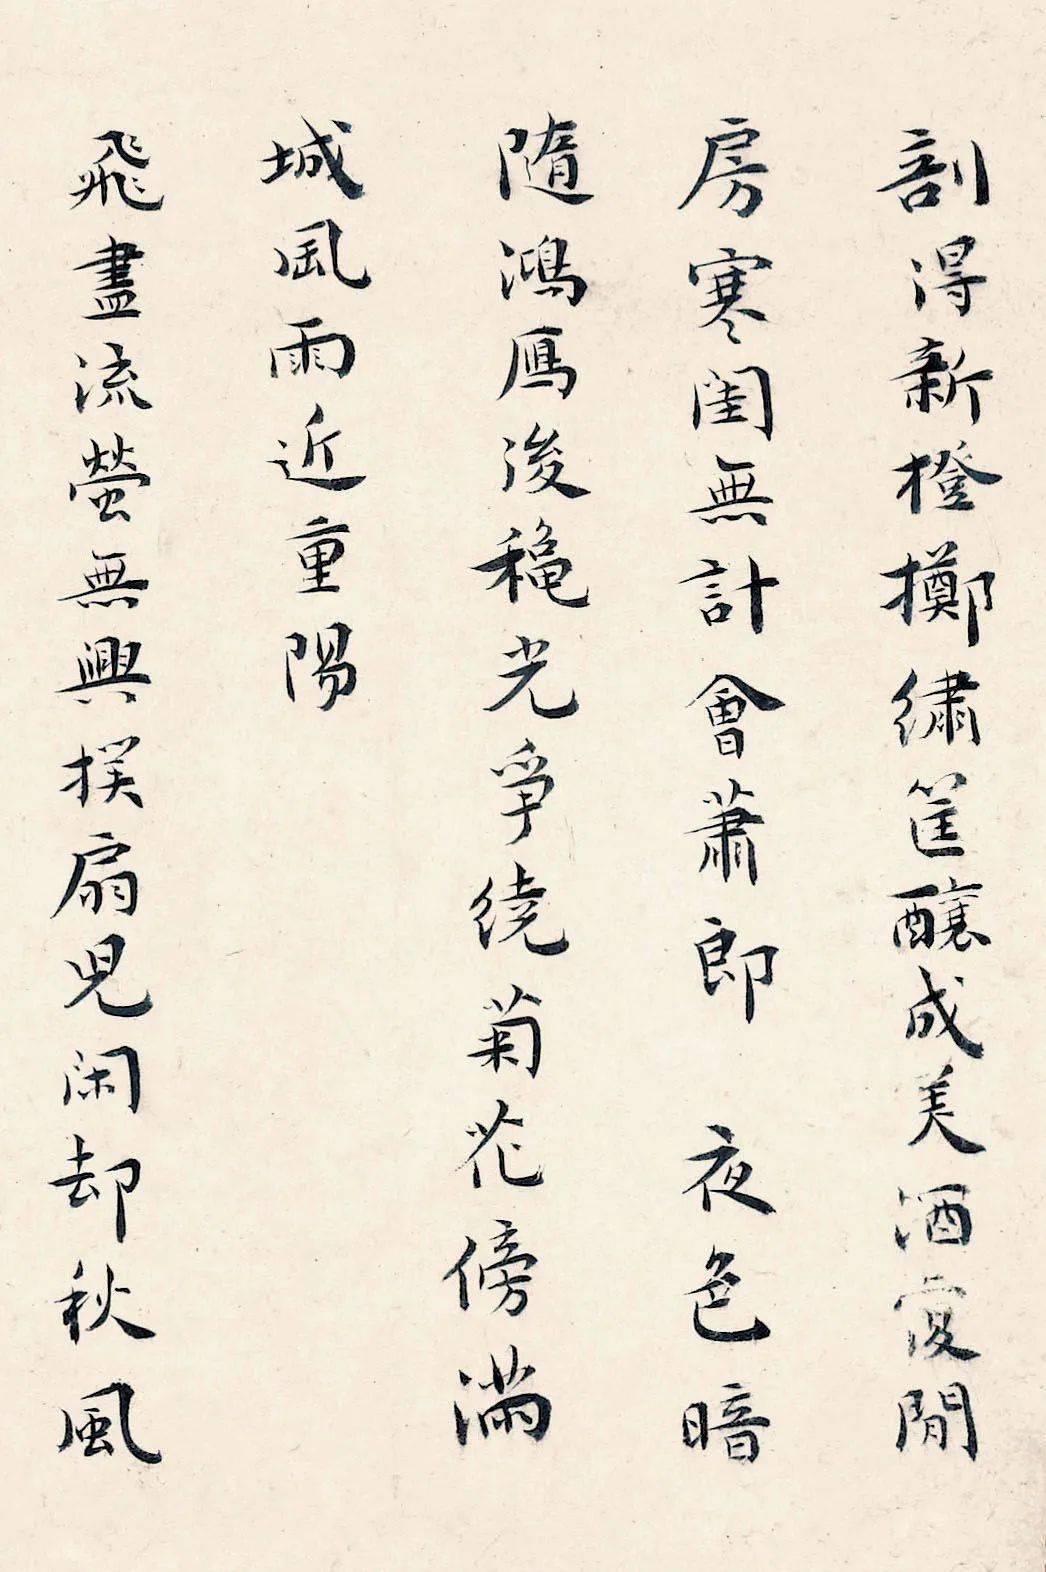 剖得新橙擲繡筐釀成美酒閒
房寒閨無計會蕭郎 夜色暗
隨鴻鴈後穐光爭繞菊花傍滿
城風雨近重陽
飛盡流螢無興撲扇兒閑却秋風